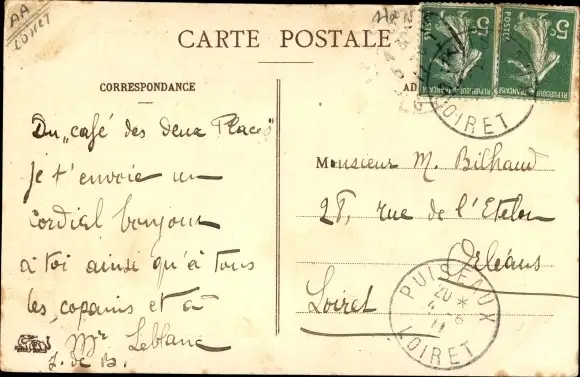 AA
LOIRET
CARTE POSTALE
CORRESPONDANCE
AD
Du "café des deux Places"
je t'envoie un
cordial bonjour
à toi ainsi qu'à tous
les copains et à
Mr Leblanc
J. de B.
5c
POSTES
REPUBLIQUE FRANÇAISE
5c
POSTES
REPUBLIQUE FRANÇAISE
LOIRET
Monsieur M. Bilhaud
27, rue de l'Etelon
Orléans
Loiret
PUISEAUX
20 *
11
LOIRET